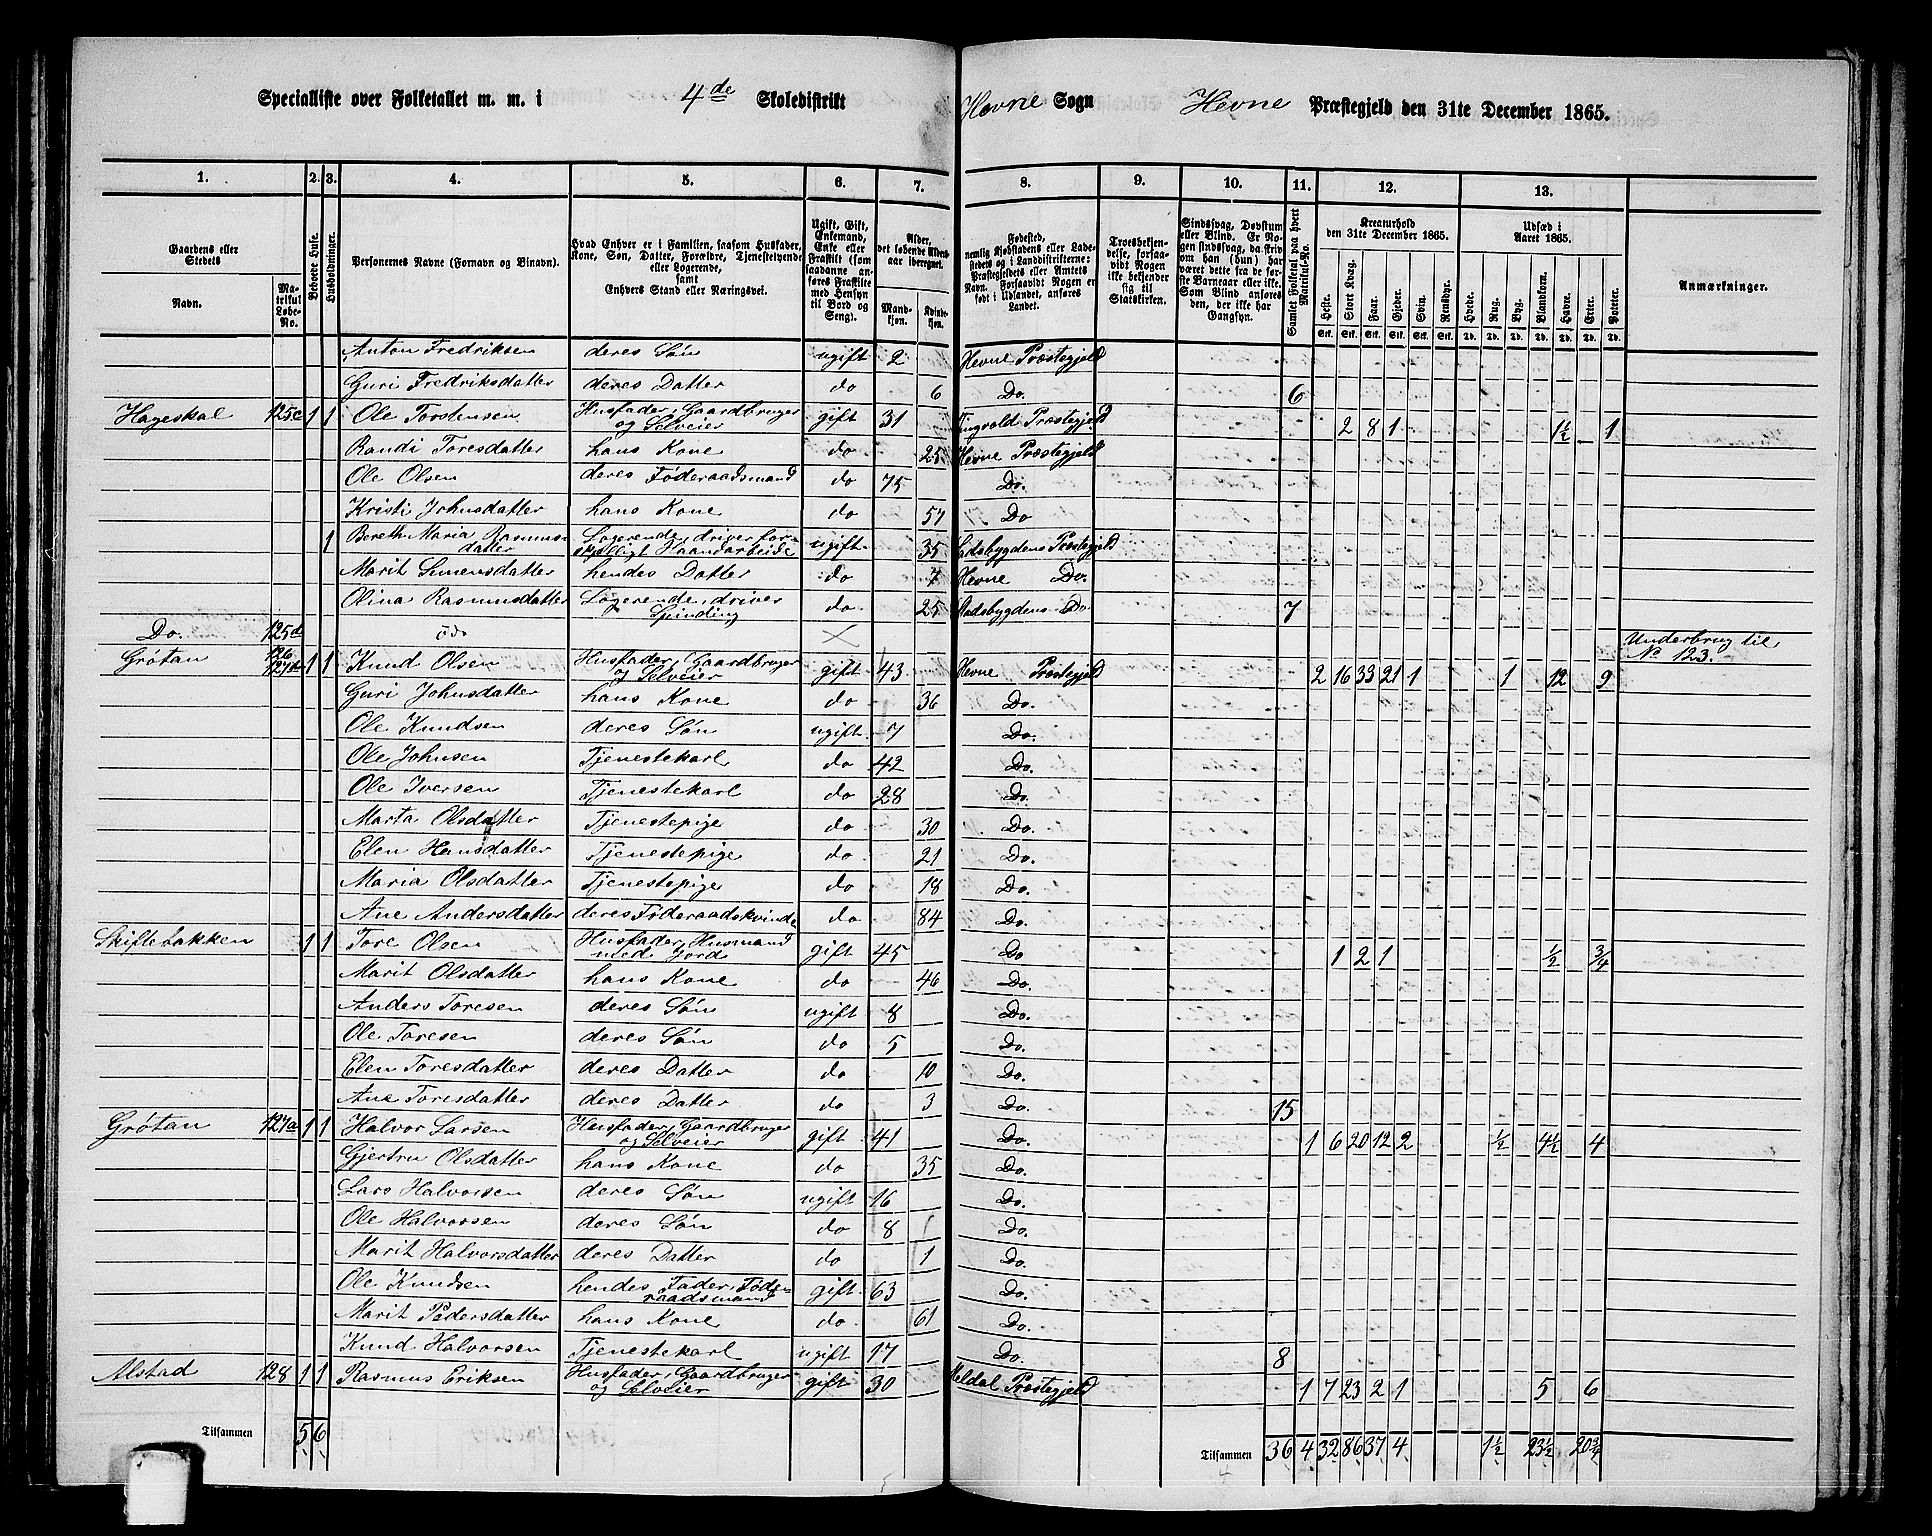 Specialliste over Folketallet m. m. i 4de Skoledistrikt Hevne Sogn Hevne Præstegjeld den 31te December 1865.
1. 2. 3. 4. 5. 6. 7. 8. 9. 10. 11. 12. 13.
Gaardens eller Stedets
Navn. Matrikul Løbe-No.
Beboede Huse.
Husholdninger.
Personernes Navne (Fornavn og Binavn).
Hvad Enhver er i Familien, saasom Husfader, Kone, Søn, Datter, Forældre, Tjenestetyende eller Logerende, samt Enhvers Stand eller Næringsvei.
Ugift, Gift, Enkemand, Enke eller Fraskilt (som saadanne anføres Fraskilte med Hensyn til Bord og Seng).
Alder, det løbende Alders-aar iberegnet.
Mandkjøn. Kvindekjøn.
Fødested, nemlig Kjøbstadens eller Ladestedets og i Landdistrikterne: Præstegjeldets eller Amtets Navn. Forsaavidt Nogen er født i Udlandet, anføres Landet.
Troesbekjendelse, forsaavidt Nogen ikke bekjender sig til Statskirken.
Sindssvag, Døvstum eller Blind. Er Nogen sindssvag, da skrives om han (hun) har været dette fra de første Barneaar eller ikke. Som Blind anføres den, der ikke har Gangsyn.
Samlet Folketal paa hvert Matrikul-No.
Kreaturhold den 31te December 1865.
Heste. Stort Kvæg. Faar. Gjeder. Svin. Rensdyr.
Udsæd i Aaret 1865.
Hvede. Rug. Byg. Blandkorn. Havre. Erter. Poteter.
Anmærkninger.
Anton Fredriksen deres Søn ugift 2 Hevne Præstegjeld
Guri Fredriksdatter deres Datter do 6 Do. 6
Hageskal 125c 1 1 Ole Torstensen Husfader, Gaardbruger og Selveier gift 31 Tingvold Præstegjeld 2 8 1 1½ 1
Randi Toresdatter hans Kone do 25 Hevne Præstegjeld
Ole Olsen deres Føderaadsmand do 75 Do.
Kristi Johnsdatter hans Kone do 57 Do
1 Bereth Maria Rasmusdatter Logerende, driver forskjelligt Haandarbeide ugift 35 Stadsbygdens Præstegjeld
Marit Simensdatter hendes Datter do 7 Hevne Do.
Olina Rasmusdatter Logerende, driver Spinding do 25 Stadsbygdens Do 7
Do. 125d öde Underbrug til No 123.
Grøtan 126 127b 1 1 Knud Olsen Husfader, Gaardbruger og Selveier gift 43 Hevne Præstegjeld 2 16 33 21 1 1 12 9
Guri Johnsdatter hans Kone do 36 Do.
Ole Knudsen deres Søn ugift 7 Do.
Ole Johnsen Tjenestekarl do 42 Do.
Ole Iversen Tjenestekarl do 28 Do.
Marta Olsdatter Tjenestepige do 30 Do.
Elen Hansdatter Tjenestepige do 21 Do.
Maria Olsdatter Tjenestepige do 18 Do.
Ane Andersdatter deres Føderaadskvinde do 84 Do.
Skiftebakken 1 1 Tore Olsen Husfader, Husmand med Jord gift 45 Do 1 2 1 ½ ¾
Marit Olsdatter hans Kone do 46 Do.
Anders Toresen deres Søn ugift 8 Do.
Ole Toresen deres Søn do 5 Do.
Elen Toresdatter deres Datter do 10 Do.
Ane Toresdatter deres Datter do 3 Do. 15
Grøtan 127a 1 1 Halvor Larsen Husfader, Gaardbruger og Selveier gift 41 Do. 1 6 20 12 2 ½ 4½ 4
Gjertru Olsdatter hans Kone do 35 Do.
Lars Halvorsen deres Søn ugift 16 Do.
Ole Halvorsen deres Søn do 8 Do.
Marit Halvorsdatter deres Datter do 1 Do.
Ole Knudsen hendes Fader, Føderaadsmand gift 63 Do.
Marit Pedersdatter hans Kone do 61 Do.
Knud Halvorsen Tjenestekarl ugift 17 Do. 8
Alstad 128 1 1 Rasmus Eriksen Husfader, Gaardbruger og Selveier gift 30 Meldal Præstegjeld 1 7 23 2 1 5 6
Tilsammen 5 6 Tilsammen 36 4 32 86 37 4 1½ 23½ 20¾
4